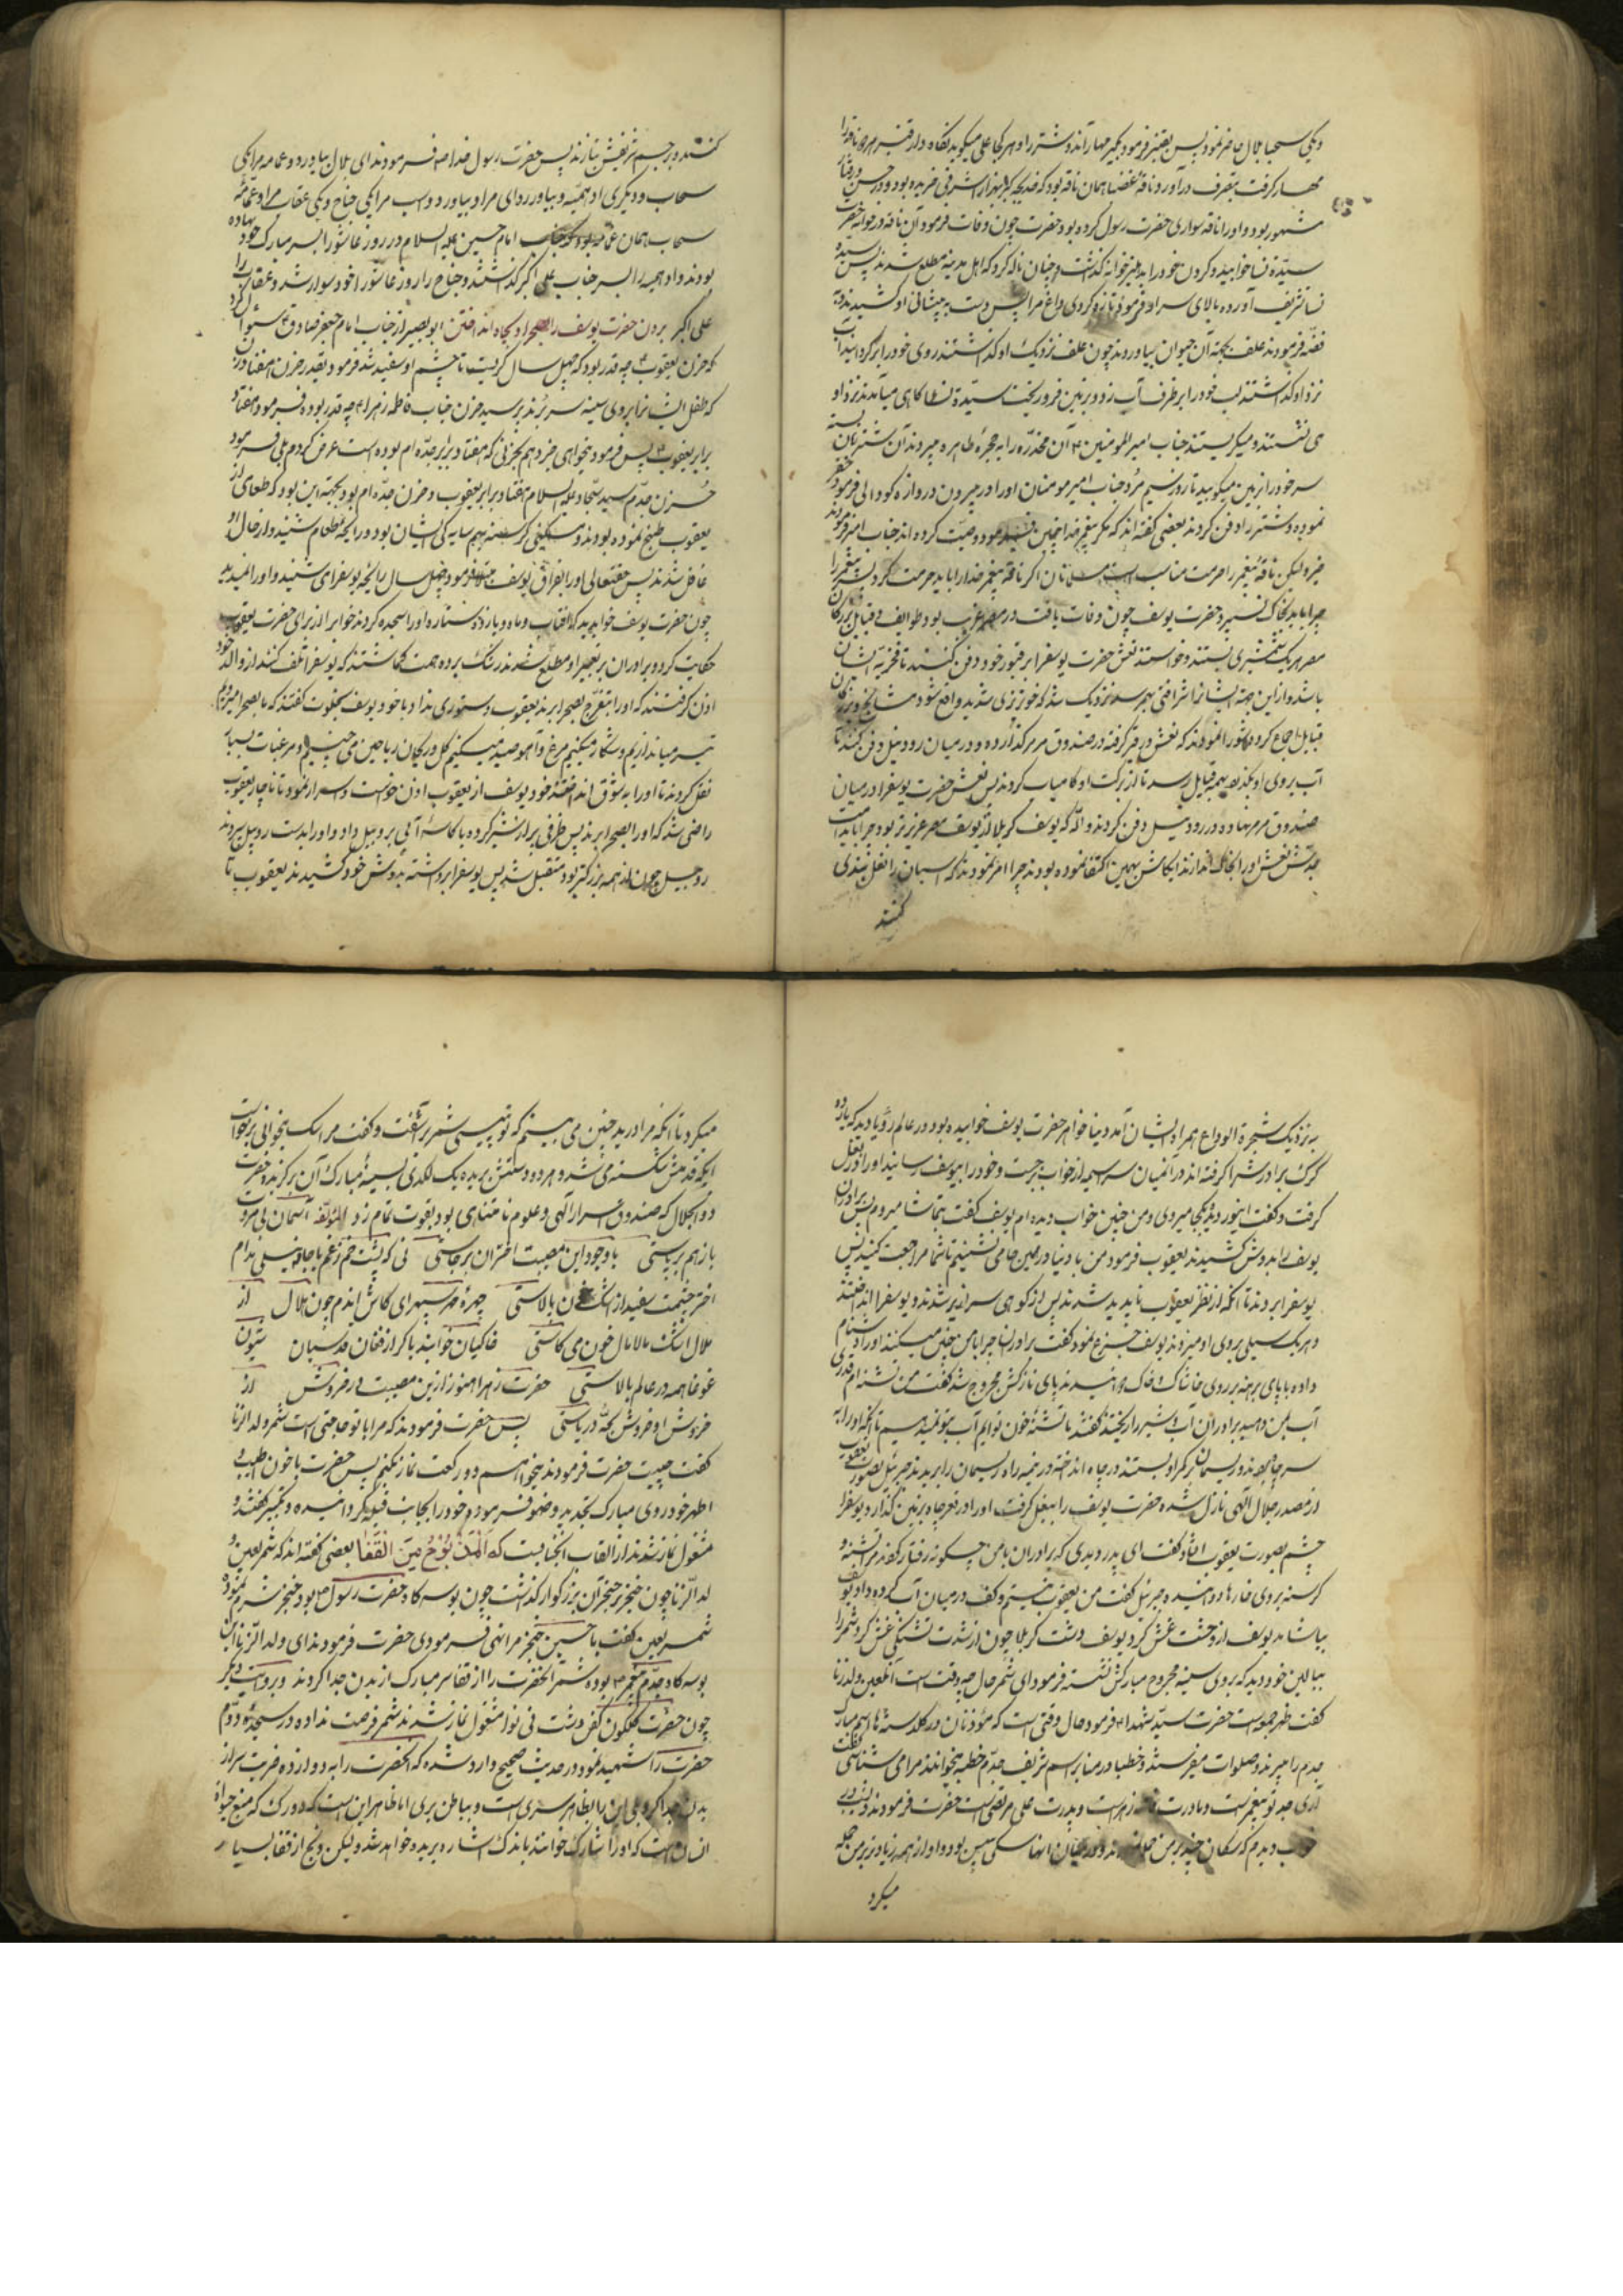 ویکی سحاب بلال حاضر نمود پس بقنبر فرمود بگیر مهار آنرا و شتر را و هر کجا علی میگوید نگاه دار قنبر
مهار گرفت بتصرف درآورد و ناقهٔ غضبا همان ناقه بود که خدیجه بهزار اشرفی خریده بود و در حسن و رفتار
مشهور بود و او را ناقه سواری حضرت رسول کرده بود حضرت چون وفات فرمود آن ناقه در خانه حضرت
سیّدهٔ نسا خوابید و گردن خود را بدهلیز خانه گذاشت و چنان ناله کرد که اهل مدینه مطلع شدند پس سیده
نسا تشریف آورده بالای سر او فرمود تازه کردی داغ مرا پس دست به پیشانی او کشیدند و به
فضّه فرمودند علف بجهة آن حیوان بیاورند چون علف نزدیک او گذاشتند روی خود را برگردانید آب
نزد او گذاشتند لب خود را بر ظرف آب زد و بر زمین فرو ریخت سیّدة نسا گاهی میآمدند نزد او
می نشستند و میگریستند جناب امیر المومنین ۴ آن مخدّره را به حجرهٔ طاهره میبردند آن شتر زبان بسته
سر خود را بزمین میکوبید تا روز سیم مرد جناب امیر مومنان او را در بیرون دروازه گودالی فرمود حفر
نموده و شتر را دفن کردند بعضی گفته اند که مگر پیغمبر خدا چنین وصیّت کرده اند جناب امیر فرمودند
خیر ولیکن ناقهٔ پیغمبر را حرمت مناسب است مسلمانان اگر ناقه پیغمبر خدا را باید حرمت کرد پسر پیغمبر را
چرا باید بخاک نسپرد حضرت یوسف چون وفات یافت در مصر غریب بود طوایف و قبایل بزرگان
مصر هر یک شمشیری بستند و خواستند نعش حضرت یوسف را بر قبور خود دفن کنند تا فخریهٔ ایشان
باشد و از این جهة ایشانرا شرافتی بهم رسد نزدیک شد که خونریزی شدید واقع شود مشایخ و بزرگان
قبایل اجماع کرده شورا نمودند که نعش را گرفته در صندوق مرمر گذارده و در میان رود نیل دفن کنند تا
آب بروی او بگذرد بهمه قبایل رسد تا از برکت او کامیاب گردند پس نعش حضرت یوسف را در میان
صندوق مرمر نهاده در رود نیل دفن کردند والله که یوسف کربلا از یوسف مصر عزیزتر بود چرا باید امّت
جدّش نعش او را بخاک نگذارند ایکاش بهمین اکتفا نموده بودند چرا امر نمودند که اسبان را نعل بندی
کنند
کنند و بر جسم شریفش بتازند پس حضرت رسول خدا ص فرمودند ای بلال بیاور دو عمامه مرا یکی
سحاب و دیگری ادهمیّه و بیاور ردای مرا و بیاور دو اسب مرا یکی جناح و یکی عقاب مرا و عمّامهٔ
سحاب همان عمامه بود که جناب امام حسین علیه السلام در روز عاشورا بسر مبارک خود نهاده
بودند و ادهمیه را بسر جناب علی اکبر گذاشتند و جناح را روز عاشورا خود سوار شد و عقاب را
علی اکبر بردن حضرت یوسف را بصحرا و بچاه انداختن ابو بصیر از جناب امام جعفر صادق ۴ سئوال کرد
که حزن یعقوب ۴ چه قدر بود که چهل سال گریست تا چشم او سفید شد فرمود بقدر حزن هفتاد زن
که طفل ایشانرا بروی سینه سر بُرند پرسید حزن جناب فاطمه زهرا ۴ چه قدر بوده فرمود هفتاد
برابر یعقوب ۴ پس فرمود میخواهی خبر دهم بحزنی که هفتاد برابر جدّه ام بوده است عرض کردم بلی فرمود
حزن جدّم سید سجّاد علیه السلام هفتاد برابر یعقوب و حزن جدّه ام بود بجهة این بود که طعامی از
یعقوب طبخ نموده بودند و مسکینی گرسنه همسایه کی ایشان بود و رایحه طعام شنید و از حال او
غافل شدند پس حقتعالی او را بفراق یوسف مبتلا فرمود چهل سال رایحه یوسف را می شنید و او را نمیدید
چون حضرت یوسف خواب دید که آفتاب و ماه و یازده ستاره او را سجده کردند خواب را از برای حضرت یعقوب
حکایت کرد و برادران بر تعبیر او مطلع شدند رشک برده همت گماشتند که یوسف را تلف کنند از والد خود
اذن گرفتند که او را بتفرّج بصحرا برند یعقوب دستوری نداد با خود یوسف بخلوت گفتند که ما بصحرا میرویم
تیر میاندازیم و شکار میکنیم مرغ و آهو صید میکنیم گل و ریحان ریاحین می چینیم و مرغبات بسیار
نقل کردند تا او را به شوق انداخته خود یوسف از یعقوب اذن خواست و اسرار نمود تا ناچار یعقوب
راضی شد که او را بصحرا برند پس ظرفی پر از شیر کرده با کاسهٔ آبی بروبیل داد و او را بدست روبیل سپردند
روبیل چون از همه بزرگتر بود متقبل شد پس یوسف را برداشته بدوش خود کشیدند یعقوب تا
به نزدیک شجرة الوداع همراه ایشان آمد دنیا خواهر حضرت یوسف خوابیده بود در عالم رؤیا دید که یازده
گرگ برادرش را گرفته اند در آنمیان سراسیمه از خواب برجست و خود را بیوسف رسانید او را در بغل
گرفت و گفت اینور دیده بکجا میروی و من چنین خواب دیده ام یوسف گفت بتماشا میروم پس برادران
یوسف را بدوش کشیدند یعقوب فرمود من با دنیا در همین جا می نشینم تا شما مراجعت کنید پس
یوسف را بردند تا آنکه از نظر یعقوب ناپدید شدند پس از کوهی سرازیر شدند و یوسف را انداختند
و هر یک سیلی بروی او میزدند یوسف جزع نمود گفت برادران چرا با من چنین میکنند او را دشنام
داده با پای برهنه بر روی خاشاک و خاک دوانیدند پای نازکش مجروح شد گفت من تشنه ام قدری
آب بمن دهید برادران آب و شیر را ریختند گفتند ما تشنهٔ خون توایم آب بتو نمیدهیم تا آنکه او را به
سر چاه بردند و ریسمان بر کمر او بستند در چاه انداختند در نیمه راه ریسمان را بریدند جبرئیل بصورت یعقوب
از مصدر جلال الهی نازل شده حضرت یوسف را ببغل گرفت او را در قعر چاه بر زمین گذارد و یوسف را
چشم بصورت یعقوب افتاد گفت ای پدر دیدی که برادران با من چگونه رفتار کردند مرا تشنه و
گرسنه بروی خارها دوانیدند جبرئیل گفت من یعقوب نیستم و کف در میان آب کرده داد یوسف
بیاشامد یوسف از وحشت غش کرد یوسف دشت کربلا چون از شدت تشنگی غش کرد شمر را
ببالین خود دید که بروی سینهٔ مجروح مبارکش نشسته فرمود ای شمر حال چه وقت است آنلعین ولدزنا
گفت ظهر جمعه است حضرت سیّد شهدا ۴ فرمود حال وقتی است که مؤذنان در گلدسته ها اسم مبارک
جدم را میبرند و صلوات میفرستند و خطبا در منابر اسم شریف جدّم خطبه میخوانند مرا می شناسی گفت
آری جد تو پیغمبر است و مادرت فاطمه زهراست و پدرت علی مرتضی است حضرت فرمودند دیشب
خواب دیدم که سگان چند بر من حمله کردند و در میان آنها سگی پیس بود و او از همه زیادتر بر من حمله
میکرد
میکرد تا آنکه مرا درید چنین می بینم که تو پیسی شمر برآشفت و گفت مرا سگ میخوانی
ایکه قدمش شکسته می شد و هر دو دستش بریده یک لگدی بسینهٔ مبارک آن برگزیده حضرت
ذو الجلال که صندوق اسرار الهی و علوم نامتناهی بود بقوت تمام زد لمؤلفه آسمان بی مروت
باز هم بر پاستی با وجود این مصیبت اختران بر جاستی نی که پشت خم ز غم با جامهٔ نیلی مدام
اختر چشمت سفید از اشک خون بالاستی چهرهٔ مهر سپهر ای کاش اندم چون هلال از
ملال اشک مالامال خون می کاستی خاکیان خوابند یا کر از فغان قدسیان شیون
غوغا همه در عالم بالاستی حضرت زهرا هنوز ازین مصیبت در خروش از
خروش او خروش لجّه دریاستی پس حضرت فرمودند که مرا با تو حاجتی است شمر ولد الزنا
گفت چیست حضرت فرمودند میخواهم دو رکعت نماز بکنم پس حضرت با خون اطیب و
اطهر خود روی مبارک تجدید وضو فرمود و خود را بجانب قبله گردانیده و تکبیر گفته و
مشغول نماز شدند از القاب آنجنابست که المَذبُوحُ مِنَ القَفا بعضی گفته اند که شمر لعین و
لد الزنا چون خنجر بر حنجر آن بزرگوار گذاشت چون بوسه گاه حضرت رسول ص بود خنجر شرم نموده
شمر لعین گفت یا حسین خنجر مرا نهی فرمودی حضرت فرمودند ای ولد الزنا این
بوسه گاه جدّم پیغمبر ۴ بوده شمر آنحضرت را از قفا سر مبارک از بدن جدا کردند و بروایت دیگر
چون حضرت گلگون کفن دشت نی نوا مشغول نماز شدند شمر فرصت نداده در سجدهٔ دوّم
حضرت را شهید نمود و در حدیث صحیح وارد شده که آنحضرت را به دوازده ضربت سر از
بدن جدا کرد ولی این را بظاهر سری است و بباطن سری اما ظاهر این است که دو رگ که منبع حیوة
انسان است که او را شارک خوانند باندک اشاره بریده خواهد شد ولیکن ذبح از قفا بسیار